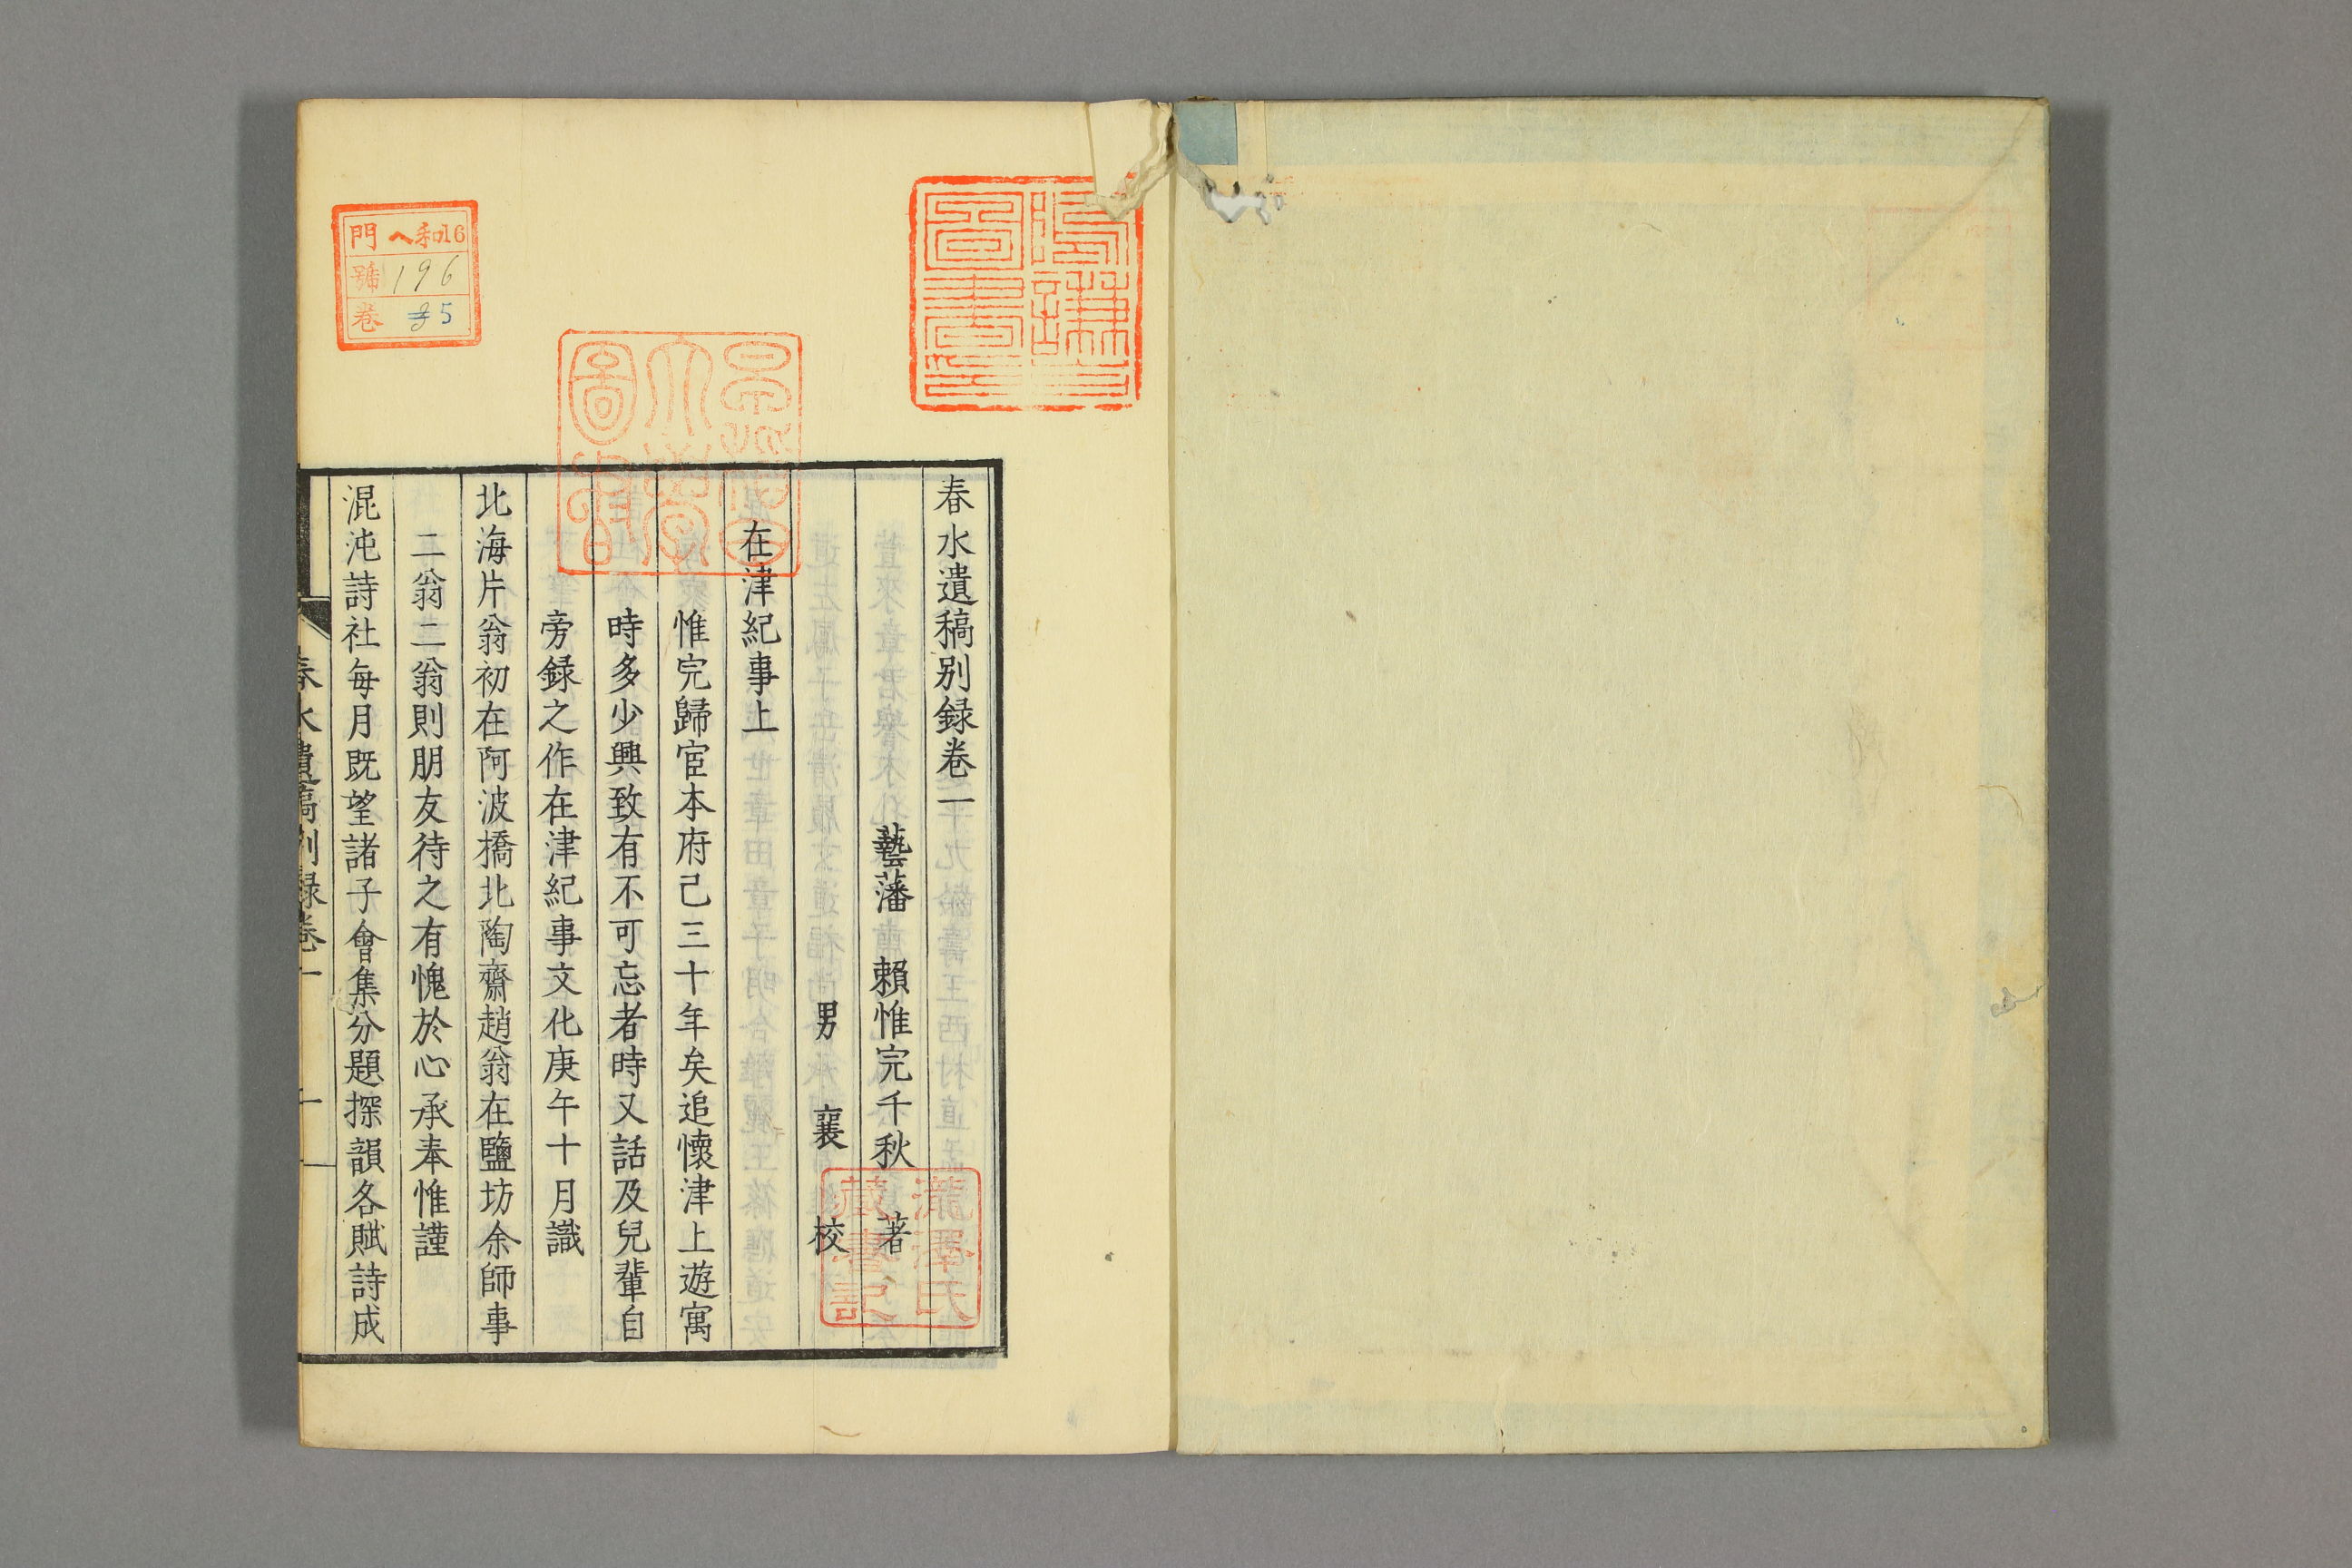 春水遺稿別録卷一
藝藩 賴惟完千秋 著
男 襄 校
在津紀事上
惟完歸宦本府已三十年矣追懷津上遊寓
時多少興致有不可忘者時又話及兒輩自
旁録之作在津紀事文化庚午十月識
北海片翁初在阿波橋北陶齋趙翁在鹽坊余師事
二翁二翁則朋友待之有愧於心承奉惟謹
混沌詩社每月既望諸子會集分題探韻各賦詩成
春水遺稿別録卷一
一
門 和16
號 196
卷 5
圖書
藏書記